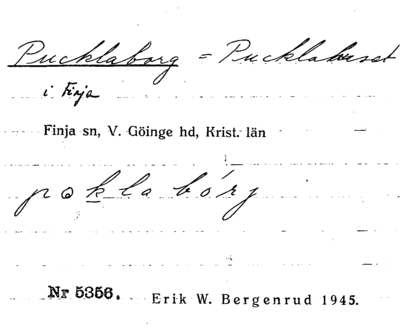 Pucklaborg = Pucklahuset
i Finja
Finja sn, V. Göinge hd, Krist. län
pokla bórj
Nr 5356. Erik W. Bergenrud 1945.